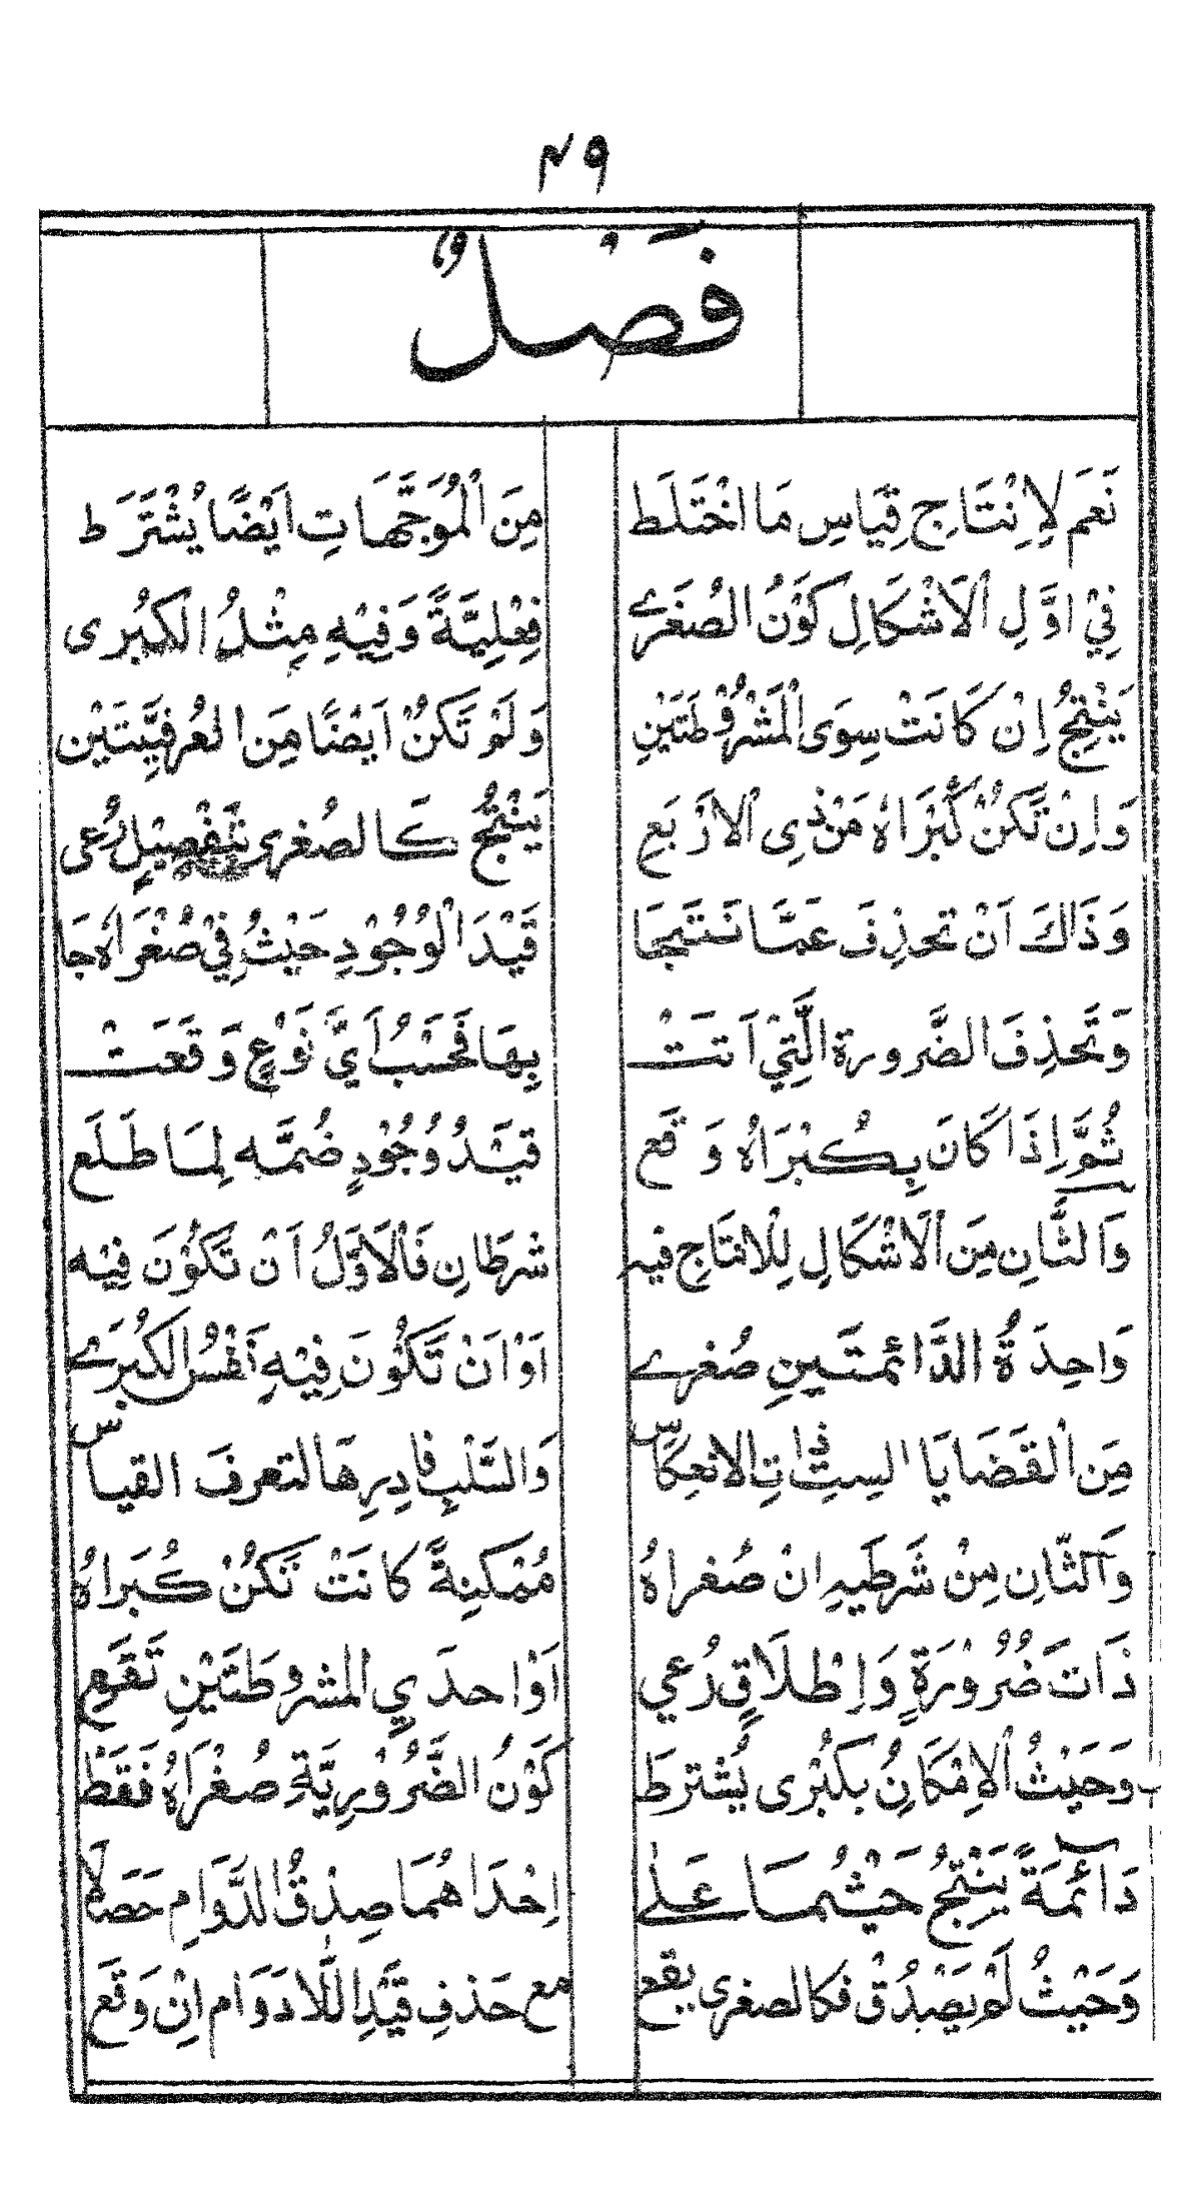 ٤٩
فَصْلٌ
نَعَم لِاِنْتَاجِ قِيَاسِ مَا اخْتَلَطَ مِنَ الْمُوَجَّهَاتِ اَيْضًا يُشْتَرَط
فِيْ اوَّلِ الْاَشْكَالِ كَوْنُ الصُغَرٰے فِعْلِيَّةً وَفِيْهِ مِثْلُ الكُبْرى
يَنْتِجُ اِنْ كَانَتْ سِوَى الْمَشْرُوْطَتَيْنِ وَلَمْ تَكنْ اَيْضًا مِنَ العُرفيَّتَيْن
وَاِنْ تَكنْ كُبْرَاهُ مَنْ ذِى الْاَرْبَعِ يَنْتِجُ كَالصُغرى بتَفْصِيْلٍ رُعى
وَذَاكَ اَنْ تحذِفَ عَمَّا نَتَجَا قَيْدَ الْوُجُوْدِ حَيْثُ فِيْ صُغْرَاهُ جَا
وَتَحذِفَ الضَّرورة الَّتِيْ اَتَتْ بِهَا فَحَسْبُ اَيَّ نَوْعٍ وَقَعَتْ
ثُمَّ اِذَا كَانَ بِكُبْرَاهُ وَقَع قيْدُ وُجُودٍ ضُمَّه لِمَا طَلَع
وَالثَّانِ مِنَ الْاَشْكَالِ لِلْانتَاجِ فيه شرطَانِ فَالْاَوَّلُ اَنْ تَكُوْنَ فِيْه
وَاحِدَةُ الدَّائمتَينِ صُغرٰے اَوْ اَنْ تَكُوْنَ فِيْهِ نَفْسُ الكُبْرٰے
مِنَ الْقَضَايَا السِتِّ ذَاتِ الانعِكَاس وَالسَّلْبِ فادِرِهَا لتعرفَ القياس
وَالثّانِ مِنْ شَرطَيهِ انْ صُغراهُ مُمْكِنةً كانَتْ تَكُنْ كُبرَاهُ
ذَاتَ ضُرُوْرَةٍ وَاِطْلَاقٍ رُعي اَوْ احدَيِ المشروطَتَيْنِ تَقَعِ
وَحَيْثُ الْاِمْكَانُ بِكُبْرى يُشْترط كَوْنُ الضَّرُوْرِيَّةِ صُغْرَاهُ فَقَطْ
دَآئِمَةً يَنْتِجُ حَيْثُمَا عَلٰى اِحْدَاهُمَا صِدْقُ الدَّوَامِ حَصَلَا
وَحَيْثُ لَمْ يَصْدُقْ فكَالصغرى يقع مع حَذفِ قَيْدِ اللَّادَوَامِ اِنْ وَقَع